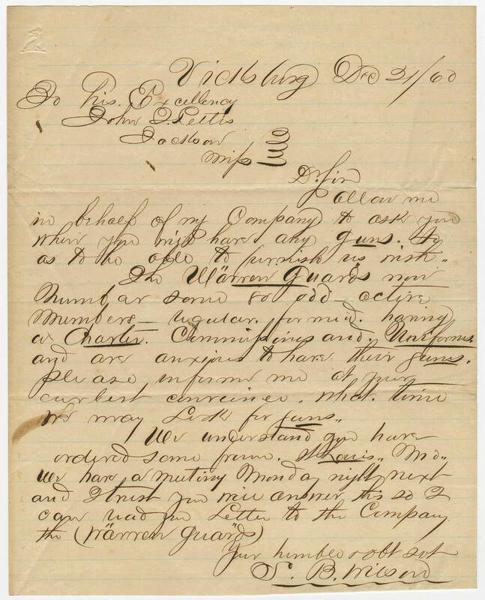 Vicksburg Dec 21/60
To His. Excellency
John J. Pettus
Jackson
Miss
Dr. Sir
Allow me
in behalf of my Company to ask you
when you will have any guns. So
as to be able to furnish us with..
The Warren Guards now
Number some 80 odd, active
members — regular formed. having
a Charter. Commissions and Uniforms
and are anxious to have their guns.
please, inform me at your
earliest convience. what time
we may look for guns..
We understand you have
ordered some from. St Louis.. Mo..
We have a meeting Monday night next
and I trust you will answer this so I
can read the Letter to the Company
the (Warren Guards)
Your humble & obt svt
S. B. Wilson